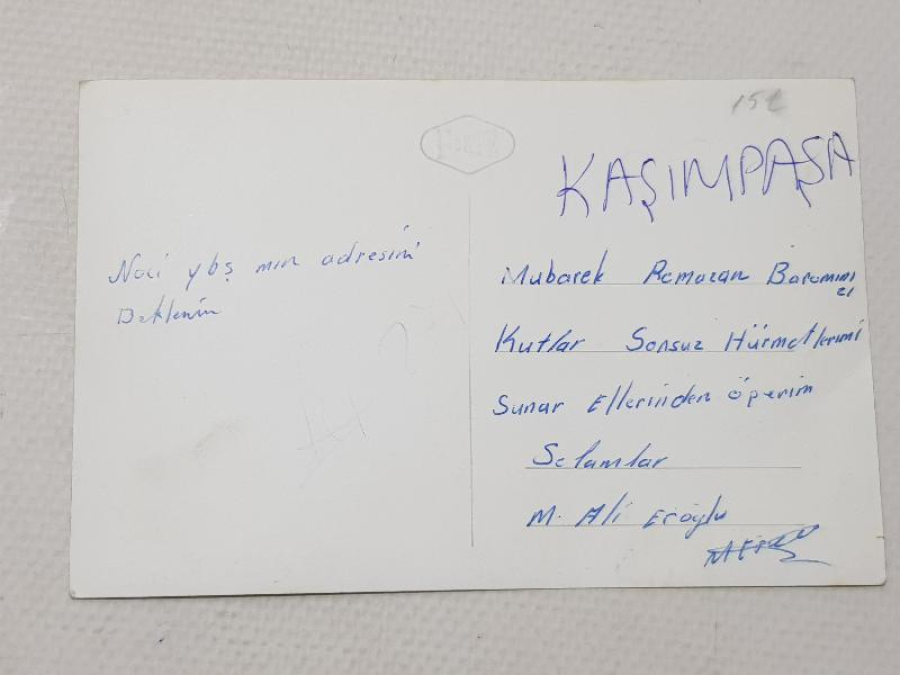 15₺
FORTE
KAŞIMPAŞA
Naci ybş mın adresini
Beklenin
Mubarek Ramazan Baramımı
zı
Kutlar Sonsuz Hürmetlerimi
Sunar Ellerinden öperim
Selamlar
M. Ali Eroğlu